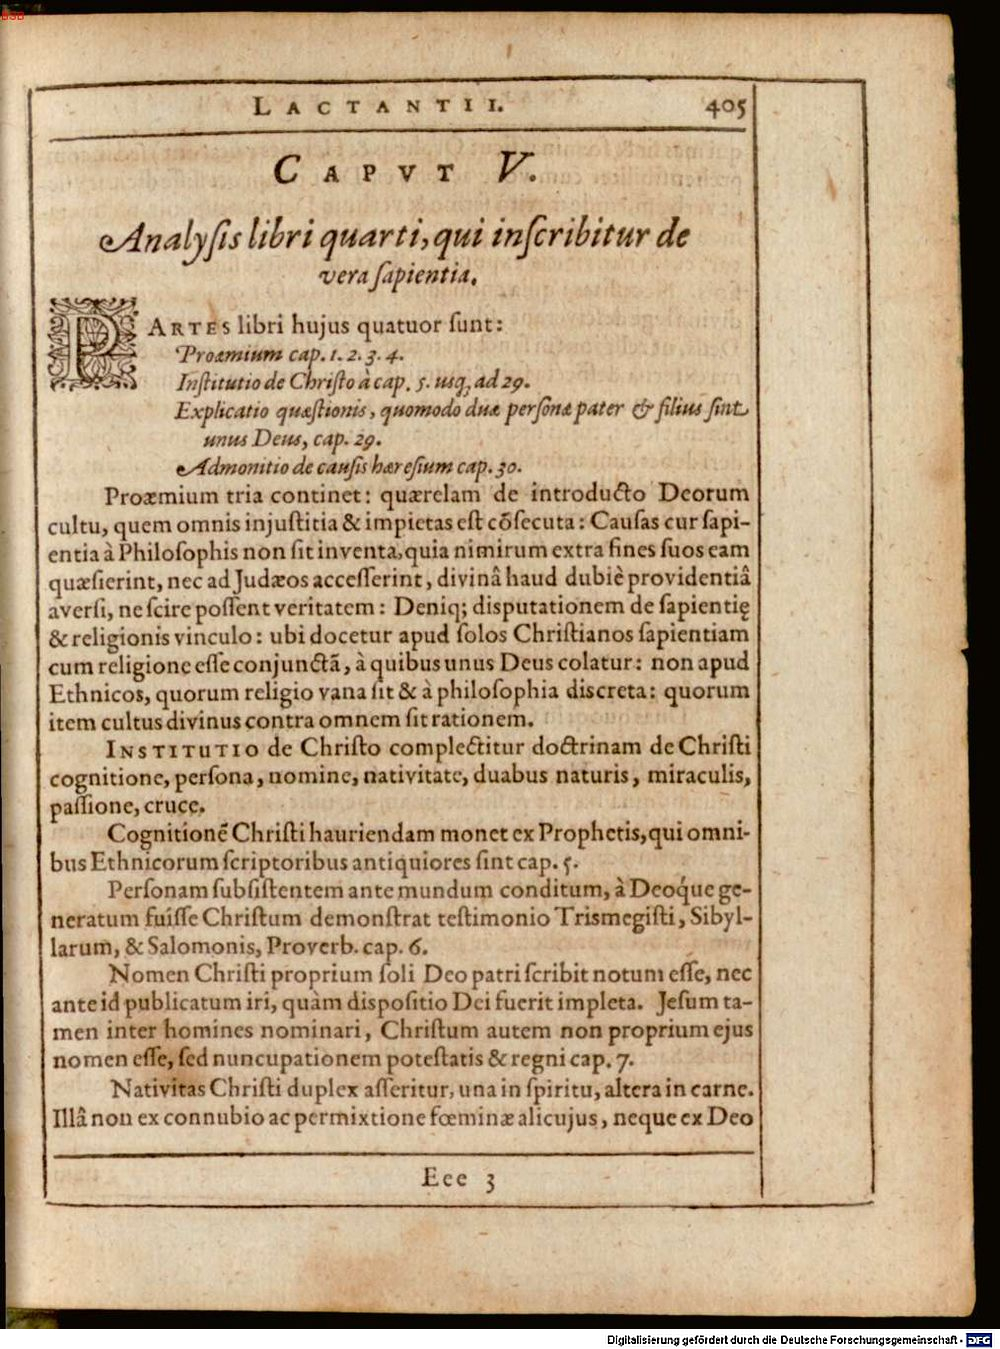 BSB
LACTANTII. 405
CAPVT V.
Analysis libri quarti, qui inscribitur de
vera sapientia.
PARTES libri hujus quatuor sunt:
Proæmium cap. 1. 2. 3. 4.
Institutio de Christo à cap. 5. usq; ad 29.
Explicatio quæstionis, quomodo duæ personæ pater & filius sint
unus Deus, cap. 29.
Admonitio de causis hæresium cap. 30.
Proæmium tria continet: quærelam de introducto Deorum
cultu, quem omnis injustitia & impietas est cõsecuta: Causas cur sapi-
entia à Philosophis non sit inventa, quia nimirum extra fines suos eam
quæsierint, nec ad Judæos accesserint, divinâ haud dubiè providentiâ
aversi, ne scire possent veritatem: Deniq; disputationem de sapientię
& religionis vinculo: ubi docetur apud solos Christianos sapientiam
cum religione esse conjunctã, à quibus unus Deus colatur: non apud
Ethnicos, quorum religio vana sit & à philosophia discreta: quorum
item cultus divinus contra omnem sit rationem.
INSTITUTIO de Christo complectitur doctrinam de Christi
cognitione, persona, nomine, nativitate, duabus naturis, miraculis,
passione, cruce.
Cognitionẽ Christi hauriendam monet ex Prophetis, qui omni-
bus Ethnicorum scriptoribus antiquiores sint cap. 5.
Personam subsistentem ante mundum conditum, à Deoq́ue ge-
neratum fuisse Christum demonstrat testimonio Trismegisti, Sibyl-
larum, & Salomonis, Proverb. cap. 6.
Nomen Christi proprium soli Deo patri scribit notum esse, nec
ante id publicatum iri, quàm dispositio Dei fuerit impleta. Jesum ta-
men inter homines nominari, Christum autem non proprium ejus
nomen esse, sed nuncupationem potestatis & regni cap. 7.
Nativitas Christi duplex asseritur, una in spiritu, altera in carne.
Illâ non ex connubio ac permixtione fœminæ alicujus, neque ex Deo
Eee 3
Digitalisierung gefördert durch die Deutsche Forschungsgemeinschaft - DFG